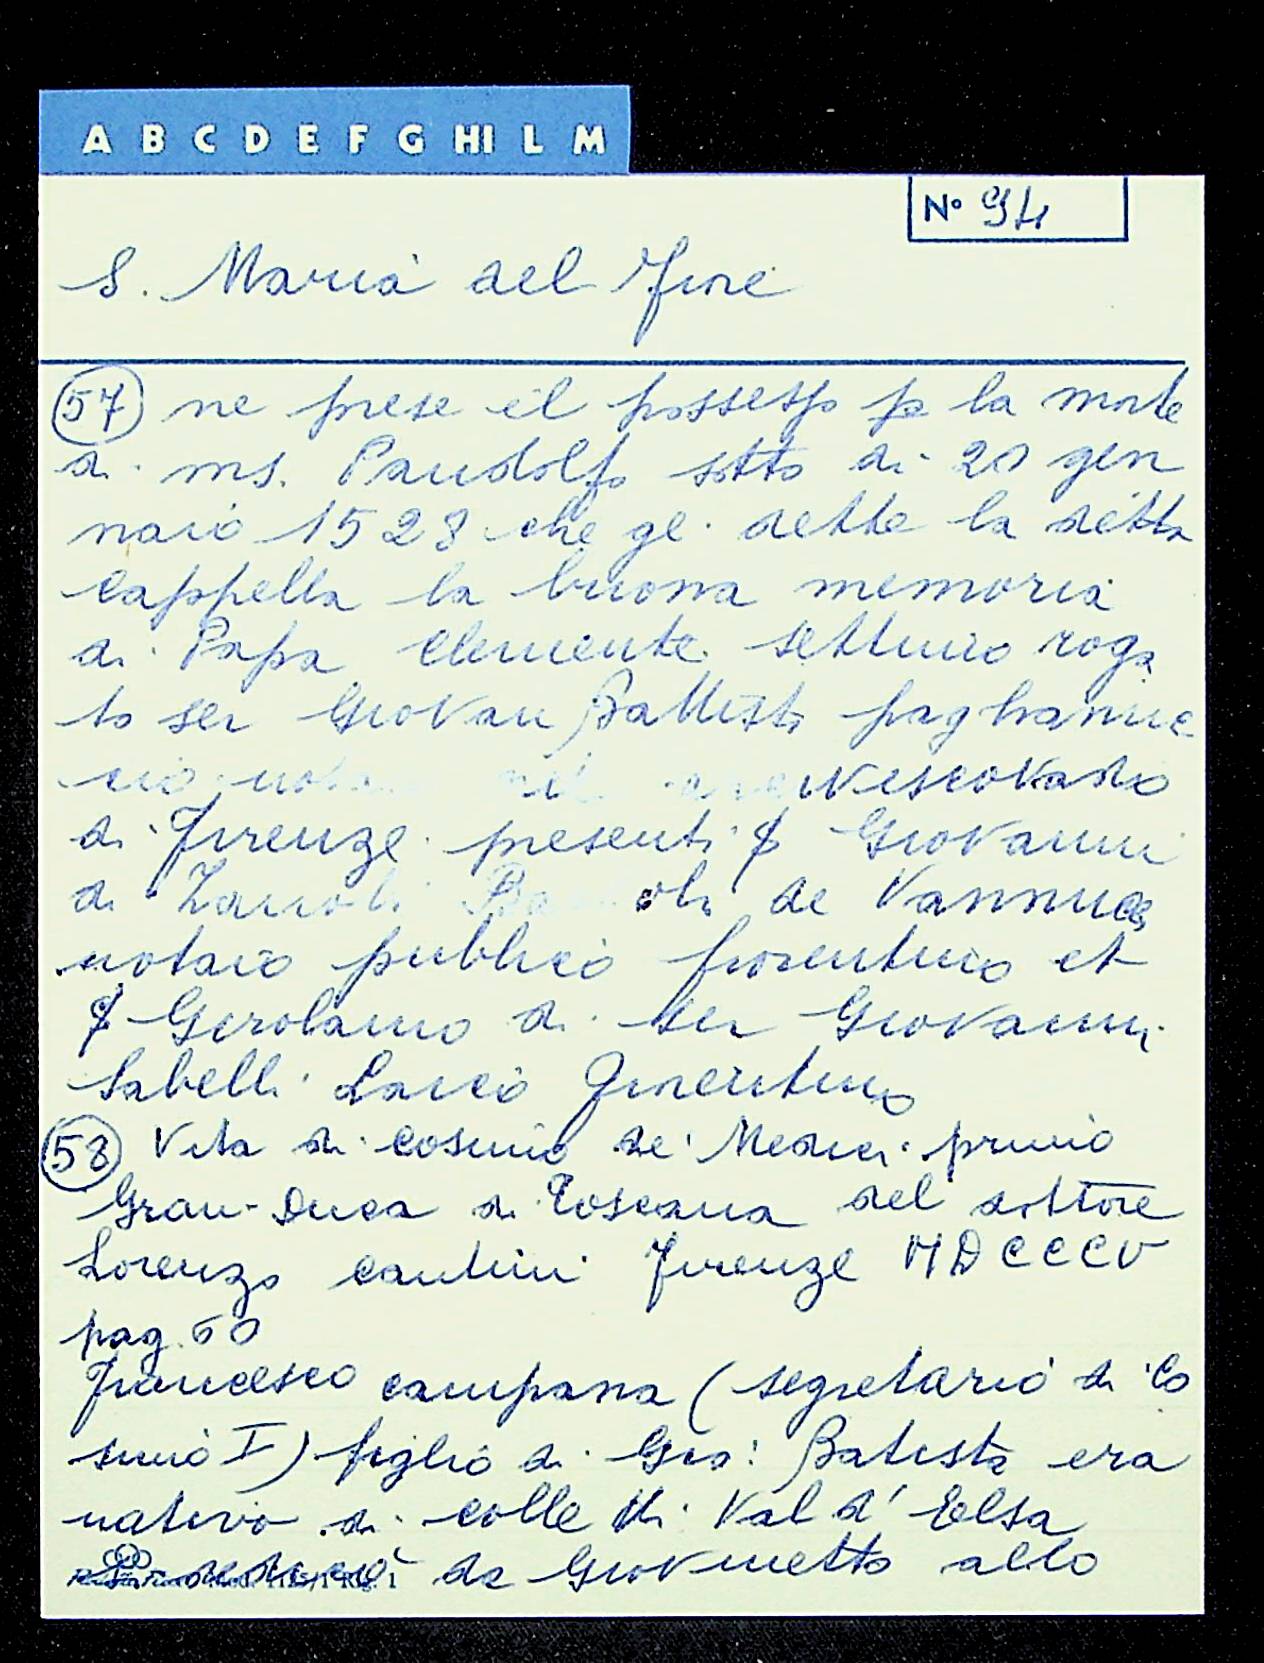 A B C D E F G HI L M
N° 94
S. Maria del Fiore
(57) ne prese il possesso p la morte
di ms. Pandolfo sotto di 20 gen
naio 1528 che gli dette la detta
cappella la buona memoria
di Papa Clemente settimo roga
to ser Giovan Battista
arcivescovado
di Firenze presenti Giovanni
di Zanobi de Vannucci
notaio publico fiorentino et
Gerolamo di ser Giovanni
Sabelli Laico fiorentino
(58) Vita di Cosimo de' Medici primo
Gran-Duca di Toscana del dottore
Lorenzo Cantini Firenze MDCCCV
pag. 60
Francesco Campana (segretario di Co
simo I) figlio di Gio: Batista era
nativo di Colle di Val d' Elsa
Si dedicò da Giovinetto allo